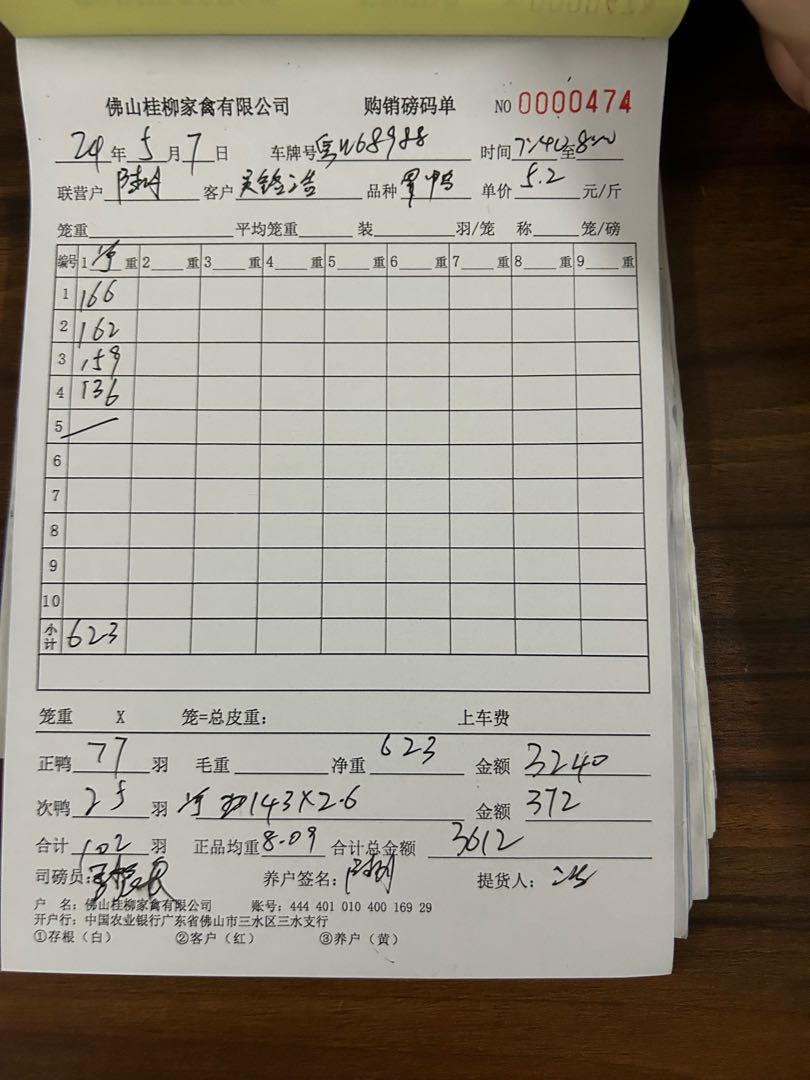 佛山桂柳家禽有限公司 购销磅码单 NO 0000474
24年5月7日 车牌号粤 68988 时间7:40至8:00
联营户 客户 吴 浩 品种 鸭 单价 5.2 元/斤
笼重 平均笼重 装 羽/笼 称 笼/磅
编号 1 净 重 2 重 3 重 4 重 5 重 6 重 7 重 8 重 9 重
1 166
2 162
3 159
4 136
5
6
7
8
9
10
小计 623
笼重 X 笼=总皮重: 上车费
正鸭 77 羽 毛重 净重 623 金额 3240
次鸭 25 羽 净 143X2.6 金额 372
合计 102 羽 正品均重 8.09 合计总金额 3612
司磅员: 养户签名: 提货人:
户 名: 佛山桂柳家禽有限公司 账号: 444 401 010 400 169 29
开户行: 中国农业银行广东省佛山市三水区三水支行
①存根(白) ②客户(红) ③养户(黄)